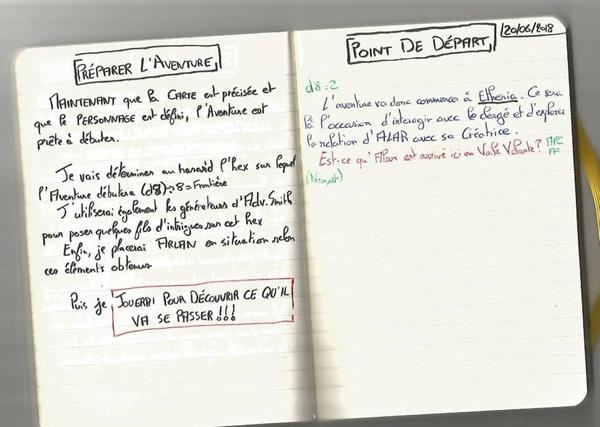 PRÉPARER L'AVENTURE
MAINTENANT que la CARTE est précisée et
que le PERSONNAGE est défini, l'Aventure est
prête à débuter.
Je vais déterminer au hasard l'hex sur lequel
l'Aventure débutera (d8) → 8 = Frontière
J'utiliserai également les générateurs d'Adv. Smith
pour poser quelques fils d'intrigues sur cet hex
Enfin, je placerai ARLAN en situation selon
ces éléments obtenus.
Puis je JOUERAI POUR DÉCOUVRIR CE QU'IL
VA SE PASSER !!!
20/06/2018
POINT DE DÉPART
d8 = 2
L'aventure va donc commencer à Ethenia. Ce sera
là l'occasion d'interagir avec le clergé et d'explorer
la relation d'ALAR avec sa Créatrice.
Est-ce qu'Alar est arrivé ici en Voile Volante ?